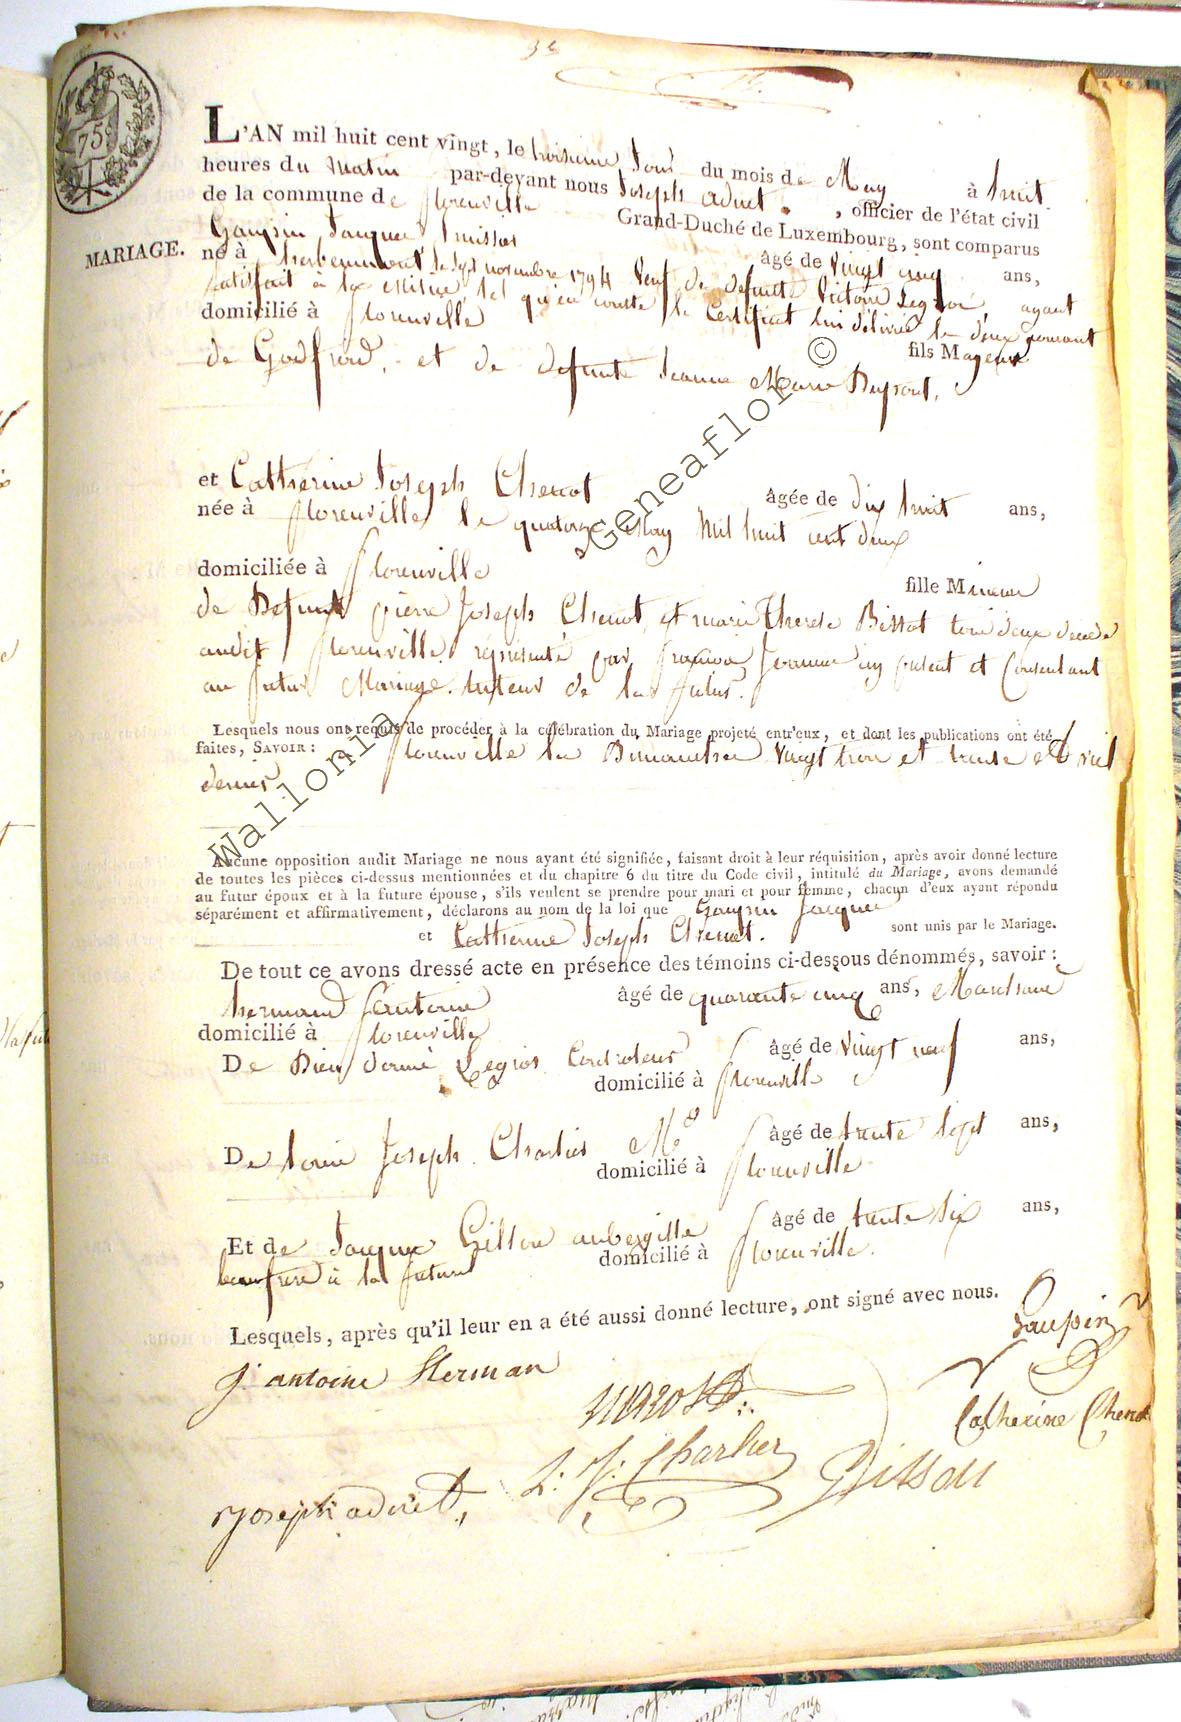 L'AN mil huit cent vingt, le troisieme Jour du mois de May à huit
heures du matin par-devant nous Joseph adnet, officier de l'état civil
de la commune de florenville Grand-Duché de Luxembourg, sont comparus
75
MARIAGE.
Gaupin Jacques huissier âgé de vingt cinq ans,
né à herbeumont le sept novembre 1794 Veuf de defunte Victoire Legros, ayant
satisfait à la Milice, tel qu'en conste le Certificat lui délivré le deux courant
domicilié à florenville fils Majeur
de Godfroid, et de defunte Jeanne Marie
et Catherine Joseph Chenot âgée de dix huit ans,
née à florenville le quatorze May Mil huit cent deux
domiciliée à florenville fille Mineure
de Defunt pierre Joseph Chenot, et marie Therese Bissot tous deux décédé
audit florenville représenté par françois présent et Consentant
au futur Mariage. tuteur de la futur.
Lesquels nous ont requis de procéder à la célébration du Mariage projeté entr'eux, et dont les publications ont été
faites, SAVOIR: florenville les Dimanches vingt trois et trente avril
dernier
Aucune opposition audit Mariage ne nous ayant été signifiée, faisant droit à leur réquisition, après avoir donné lecture
de toutes les pièces ci-dessus mentionnées et du chapitre 6 du titre du Code civil, intitulé du Mariage, avons demandé
au futur époux et à la future épouse, s'ils veulent se prendre pour mari et pour femme, chacun d'eux ayant répondu
séparément et affirmativement, déclarons au nom de la loi que Gaupin Jacques
et Catherine Joseph Chenot. sont unis par le Mariage.
De tout ce avons dressé acte en présence des témoins ci-dessous dénommés, savoir:
hermand J antoine âgé de quarante cinq ans, Marechaux
domicilié à florenville
De Dieu donné Legros Controleur âgé de vingt neuf ans,
domicilié à florenville
De Louis Joseph Charlier Md âgé de trente sept ans,
domicilié à florenville
Et de Jacques Gillon aubergiste âgé de trente six ans,
beaufrere à la future domicilié à florenville.
Lesquels, après qu'il leur en a été aussi donné lecture, ont signé avec nous.
Gaupin
J antoine Herman
Catherine Chenot
L: J: Charlier
Joseph adnet
Wallonia Geneaflor ©